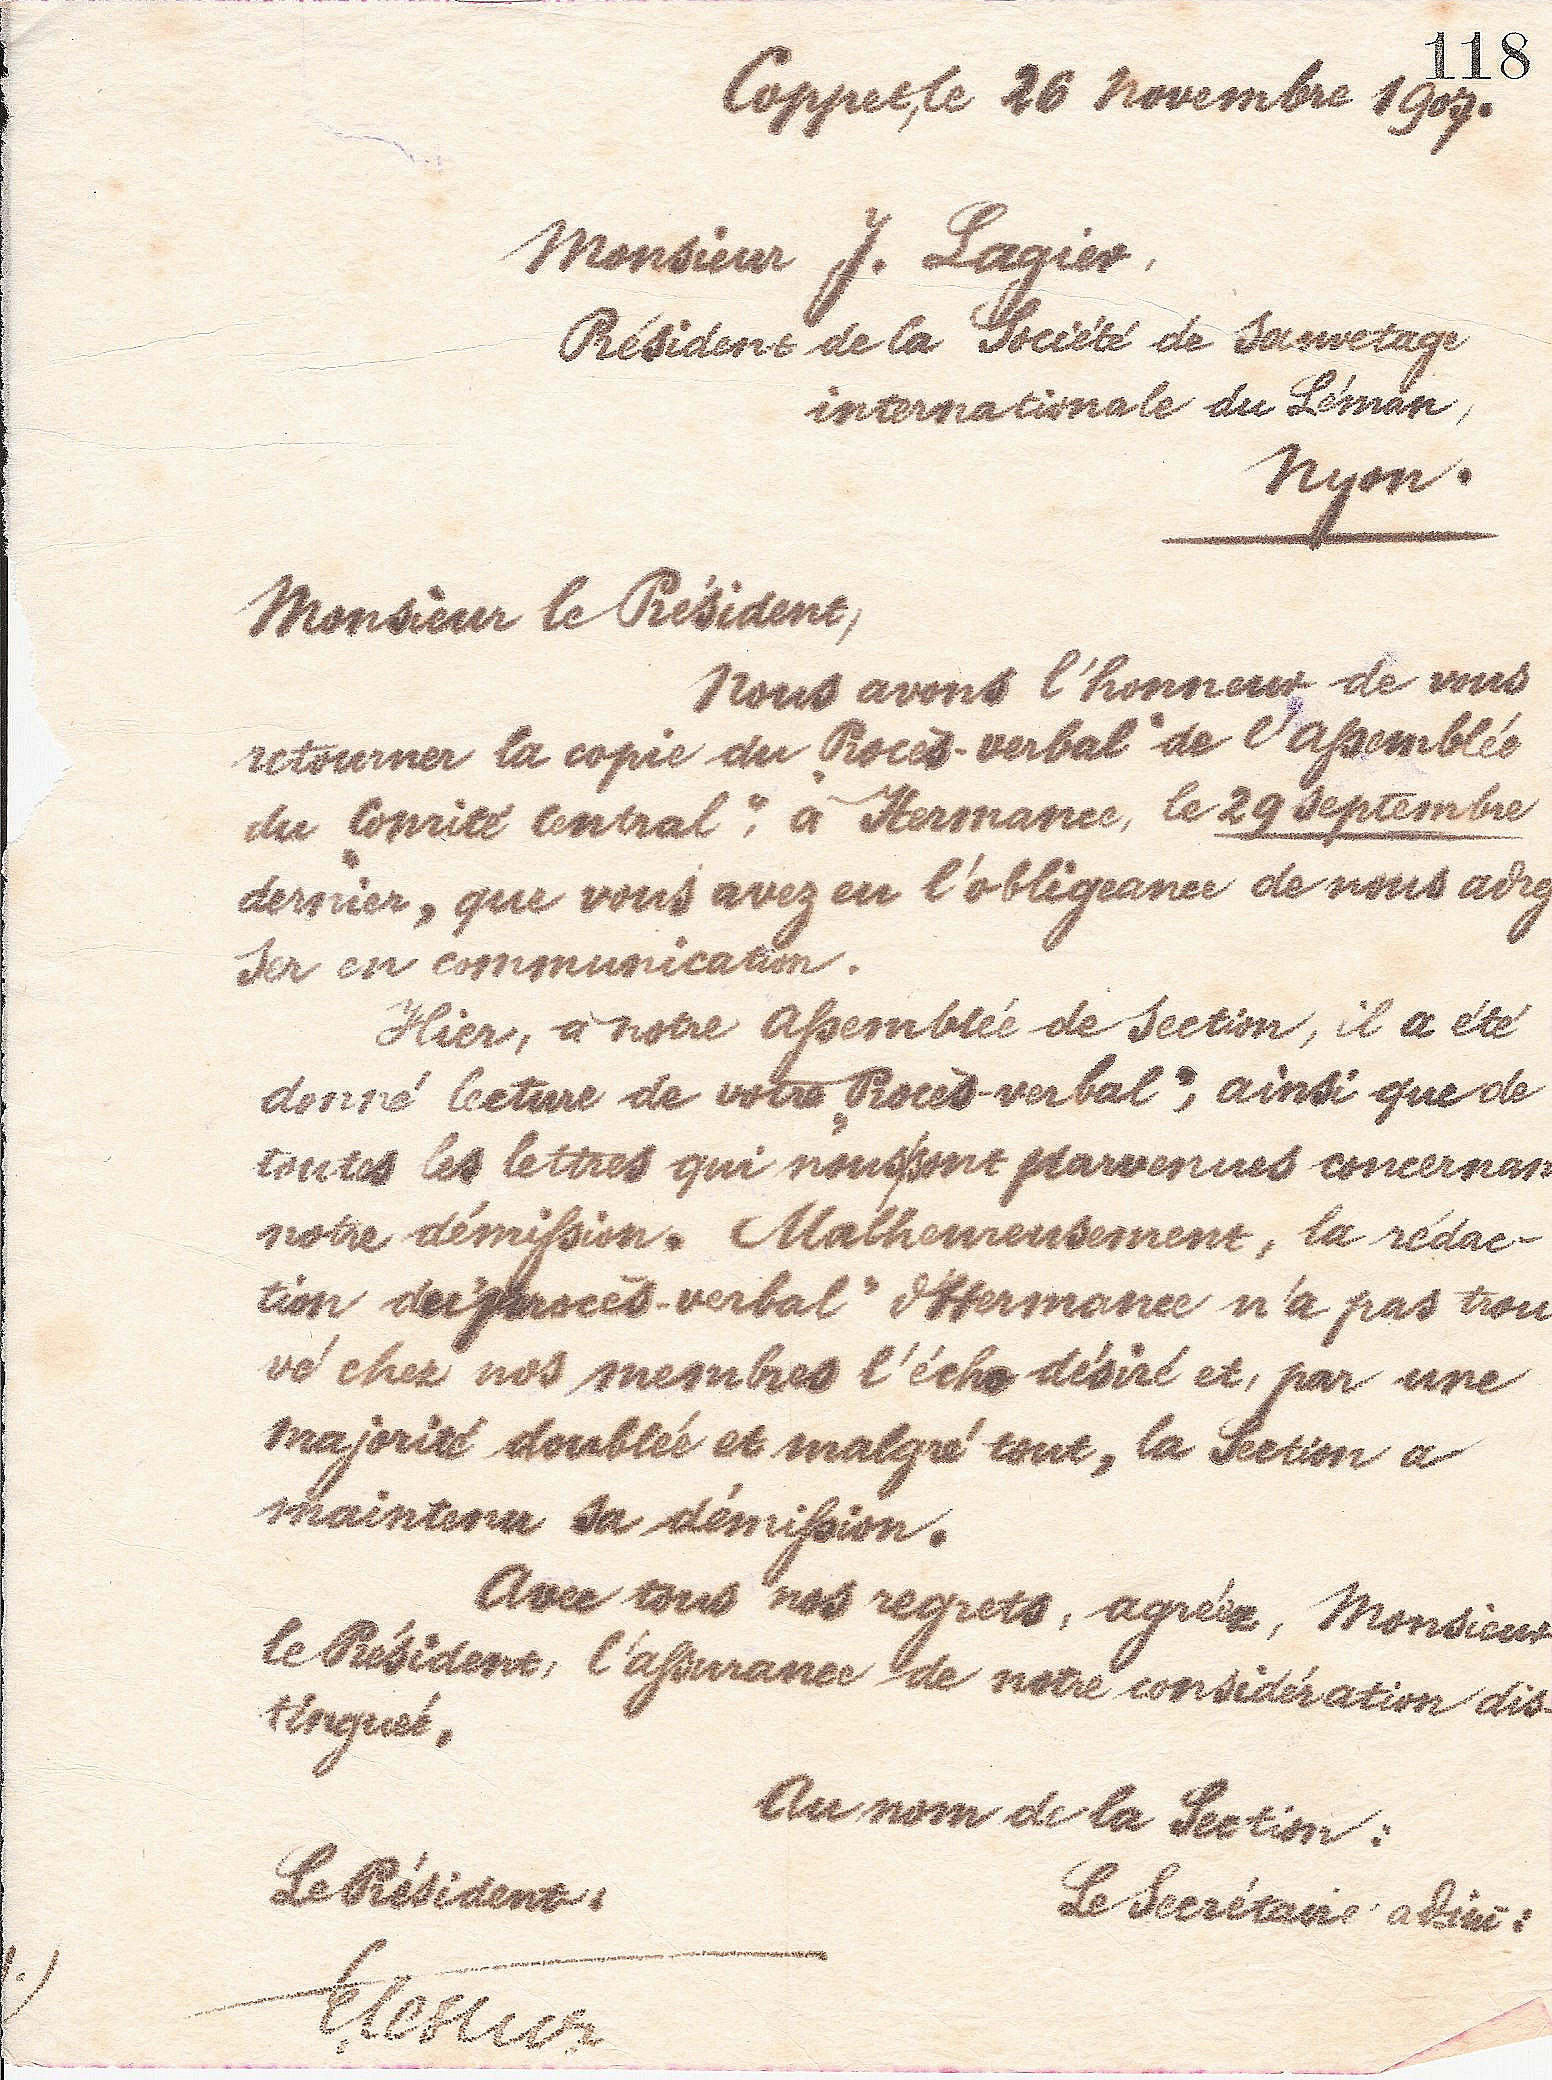 118
Coppet, le 26 Novembre 1907.
Monsieur J. Lagier,
Président de la Société de Sauvetage
internationale du Léman,
Nyon.
Monsieur le Président,
Nous avons l'honneur de vous
retourner la copie du „Procès-verbal" de l'Assemblée
du „Comité Central", à Hermance, le 29 septembre
dernier, que vous avez eu l'obligeance de nous adres
ser en communication.
Hier, à notre Assemblée de Section, il a été
donné lecture de votre „Procès-verbal", ainsi que de
toutes les lettres qui nous sont parvenues concernan
notre démission. Malheureusement, la rédac-
tion du "procès-verbal" d'Hermance n'a pas trou
vé chez nos membres l'écho désiré et, par une
majorité doublée et malgré tout, la Section a
maintenu sa démission.
Avec tous nos regrets, agréez, Monsieur
le Président, l'assurance de notre considération dis-
tinguée.
Au nom de la Section:
Le Président: Le Secrétaire